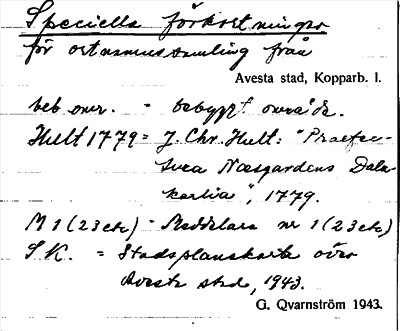 Speciella förkortningar
för ortnamnssamling från
Avesta stad, Kopparb. l.
beb. omr. = bebyggt område.
Hult 1779 = J. Chr. Hult: "Praefec-
tura Næsgardens Dale-
karlia", 1779.
M 1 (2 3 etc) = Meddelare nr 1 (2 3 etc)
S.K. = Stadsplanekarta över
Avesta stad, 1943.
G. Qvarnström 1943.